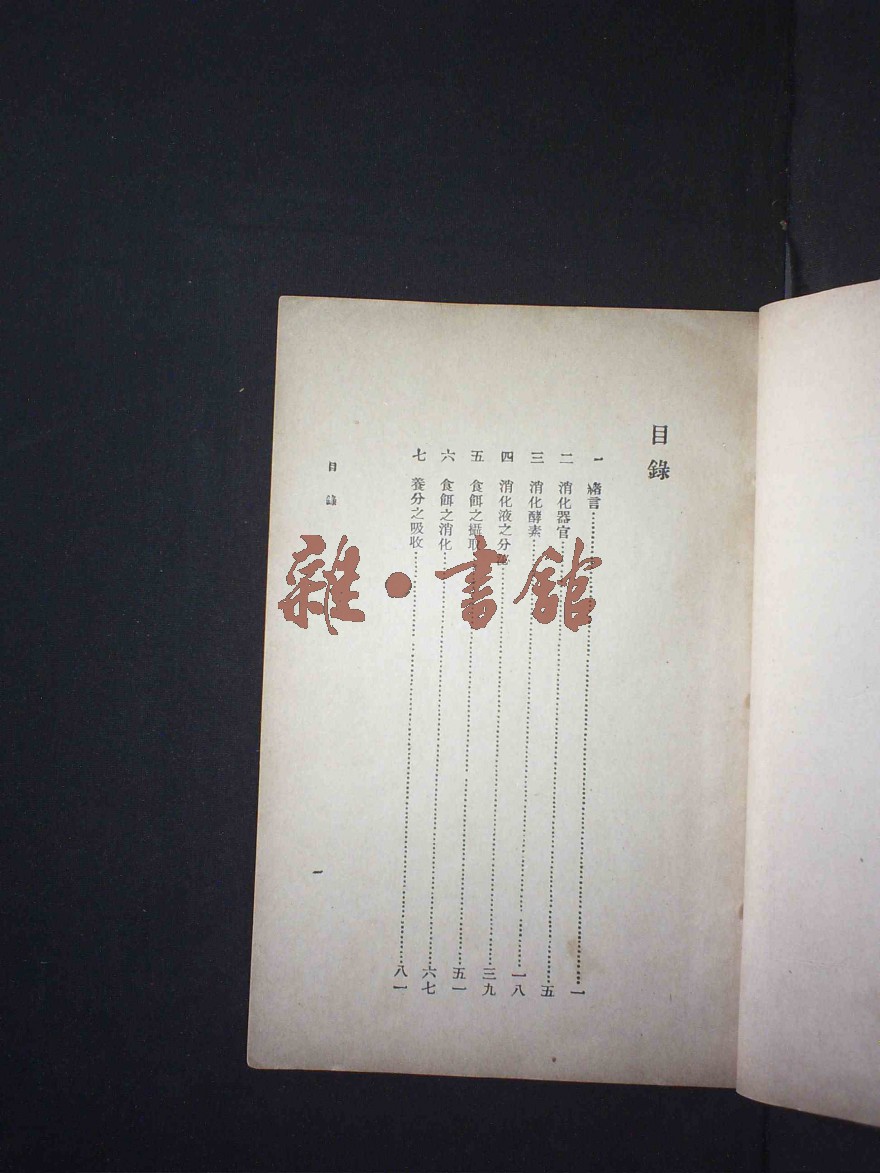 目錄
一 緒言 一
二 消化器官 五
三 消化酵素 一八
四 消化液之分泌 三九
五 食餌之攝取 五一
六 食餌之消化 六七
七 養分之吸收 八一
目錄
一
雜·書館